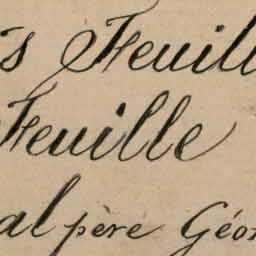 s Feuill
Feuille
al père Géor